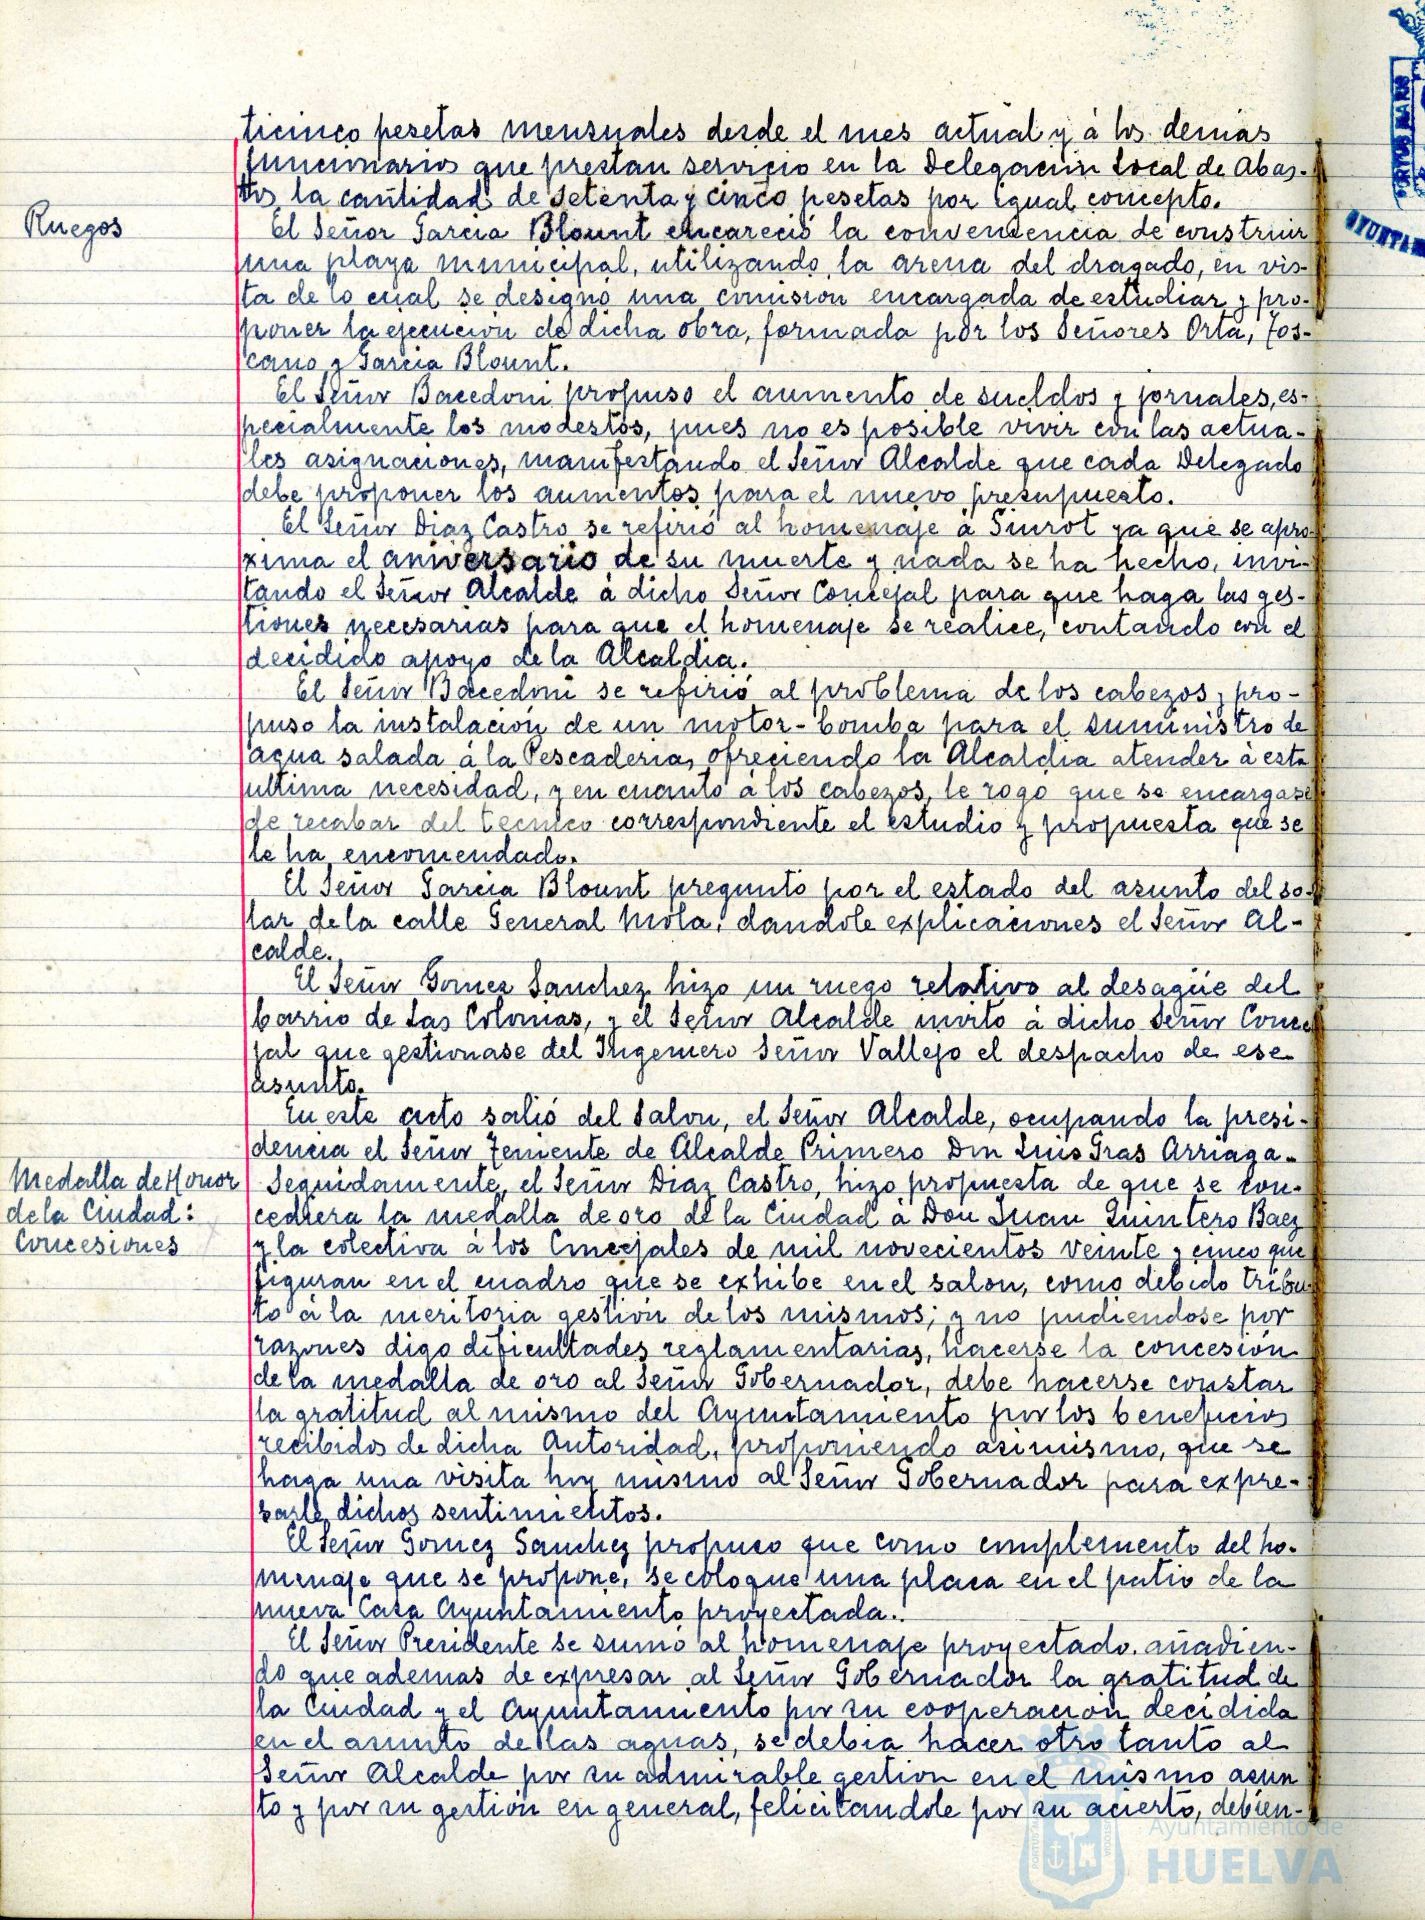 ticinco pesetas mensuales desde el mes actual y á los demás
funcionarios que prestan servicio en la Delegación Local de Abas-
tos, la cantidad de setenta y cinco pesetas por igual concepto.
Ruegos
El Señor Garcia Blount encareció la conveniencia de construir
una playa municipal, utilizando la arena del dragado, en vis-
ta de lo cual se designó una comision encargada de estudiar y pro-
poner la ejecución de dicha obra, formada por los Señores Orta, Tos-
cano y Garcia Blount.
El Señor Bacedoni propuso el aumento de sueldos y jornales, es-
pecialmente los modestos, pues no es posible vivir con las actua-
les asignaciones, manifestando el Señor Alcalde que cada Delegado
debe proponer los aumentos para el nuevo presupuesto.
El Señor Diaz Castro se refirió al homenaje á Siurot ya que se apro-
xima el aniversario de su muerte y nada se ha hecho, invi-
tando el Señor Alcalde á dicho Señor Concejal para que haga las ges-
tiones necesarias para que el homenaje se realice, contando con el
decidido apoyo de la Alcaldia.
El Señor Bacedoni se refirió al problema de los cabezos y pro-
puso la instalación de un motor-bomba para el suministro de
agua salada á la Pescaderia, ofreciendo la Alcaldia atender á esta
ultima necesidad, y en cuanto á los cabezos, le rogó que se encargase
de recabar del tecnico correspondiente el estudio y propuesta que se
le ha encomendado.
El Señor Garcia Blount preguntó por el estado del asunto del so-
lar de la calle General Mola, dandole explicaciones el Señor Al-
calde.
El Señor Gomez Sanchez hizo un ruego relativo al desagüe del
barrio de Las Colonias, y el Señor Alcalde invitó á dicho Señor Conce
jal que gestionase del Ingeniero Señor Vallejo el despacho de ese
asunto.
En este acto salió del Salon, el Señor Alcalde, ocupando la presi-
dencia el Señor Teniente de Alcalde Primero Don Luis Gras Arriaga.
Medalla de Honor
de la Ciudad:
Concesiones
Seguidamente, el Señor Diaz Castro, hizo propuesta de que se con-
cediera la medalla de oro de la Ciudad á Don Juan Quintero Baez
y la colectiva á los Concejales de mil novecientos veinte y cinco que
figuran en el cuadro que se exhibe en el salon, como debido tribu-
to á la meritoria gestión de los mismos; y no pudiendose por
razones digo dificultades reglamentarias, hacerse la concesión
de la medalla de oro al Señor Gobernador, debe hacerse constar
la gratitud al mismo del Ayuntamiento por los beneficios
recibidos de dicha Autoridad, proponiendo asimismo, que se
haga una visita hoy mismo al Señor Gobernador para expre-
sarle dichos sentimientos.
El Señor Gomez Sanchez propuso que como complemento del ho-
menaje que se propone, se coloque una placa en el patio de la
nueva Casa Ayuntamiento proyectada.
El Señor Presidente se sumó al homenaje proyectado, añadien-
do que ademas de expresar al Señor Gobernador la gratitud de
la Ciudad y el Ayuntamiento por su cooperación decidida
en el asunto de las aguas, se debia hacer otro tanto al
Señor Alcalde por su admirable gestion en el mismo asun
to y por su gestión en general, felicitandole por su acierto, debien-
Ayuntamiento de
HUELVA